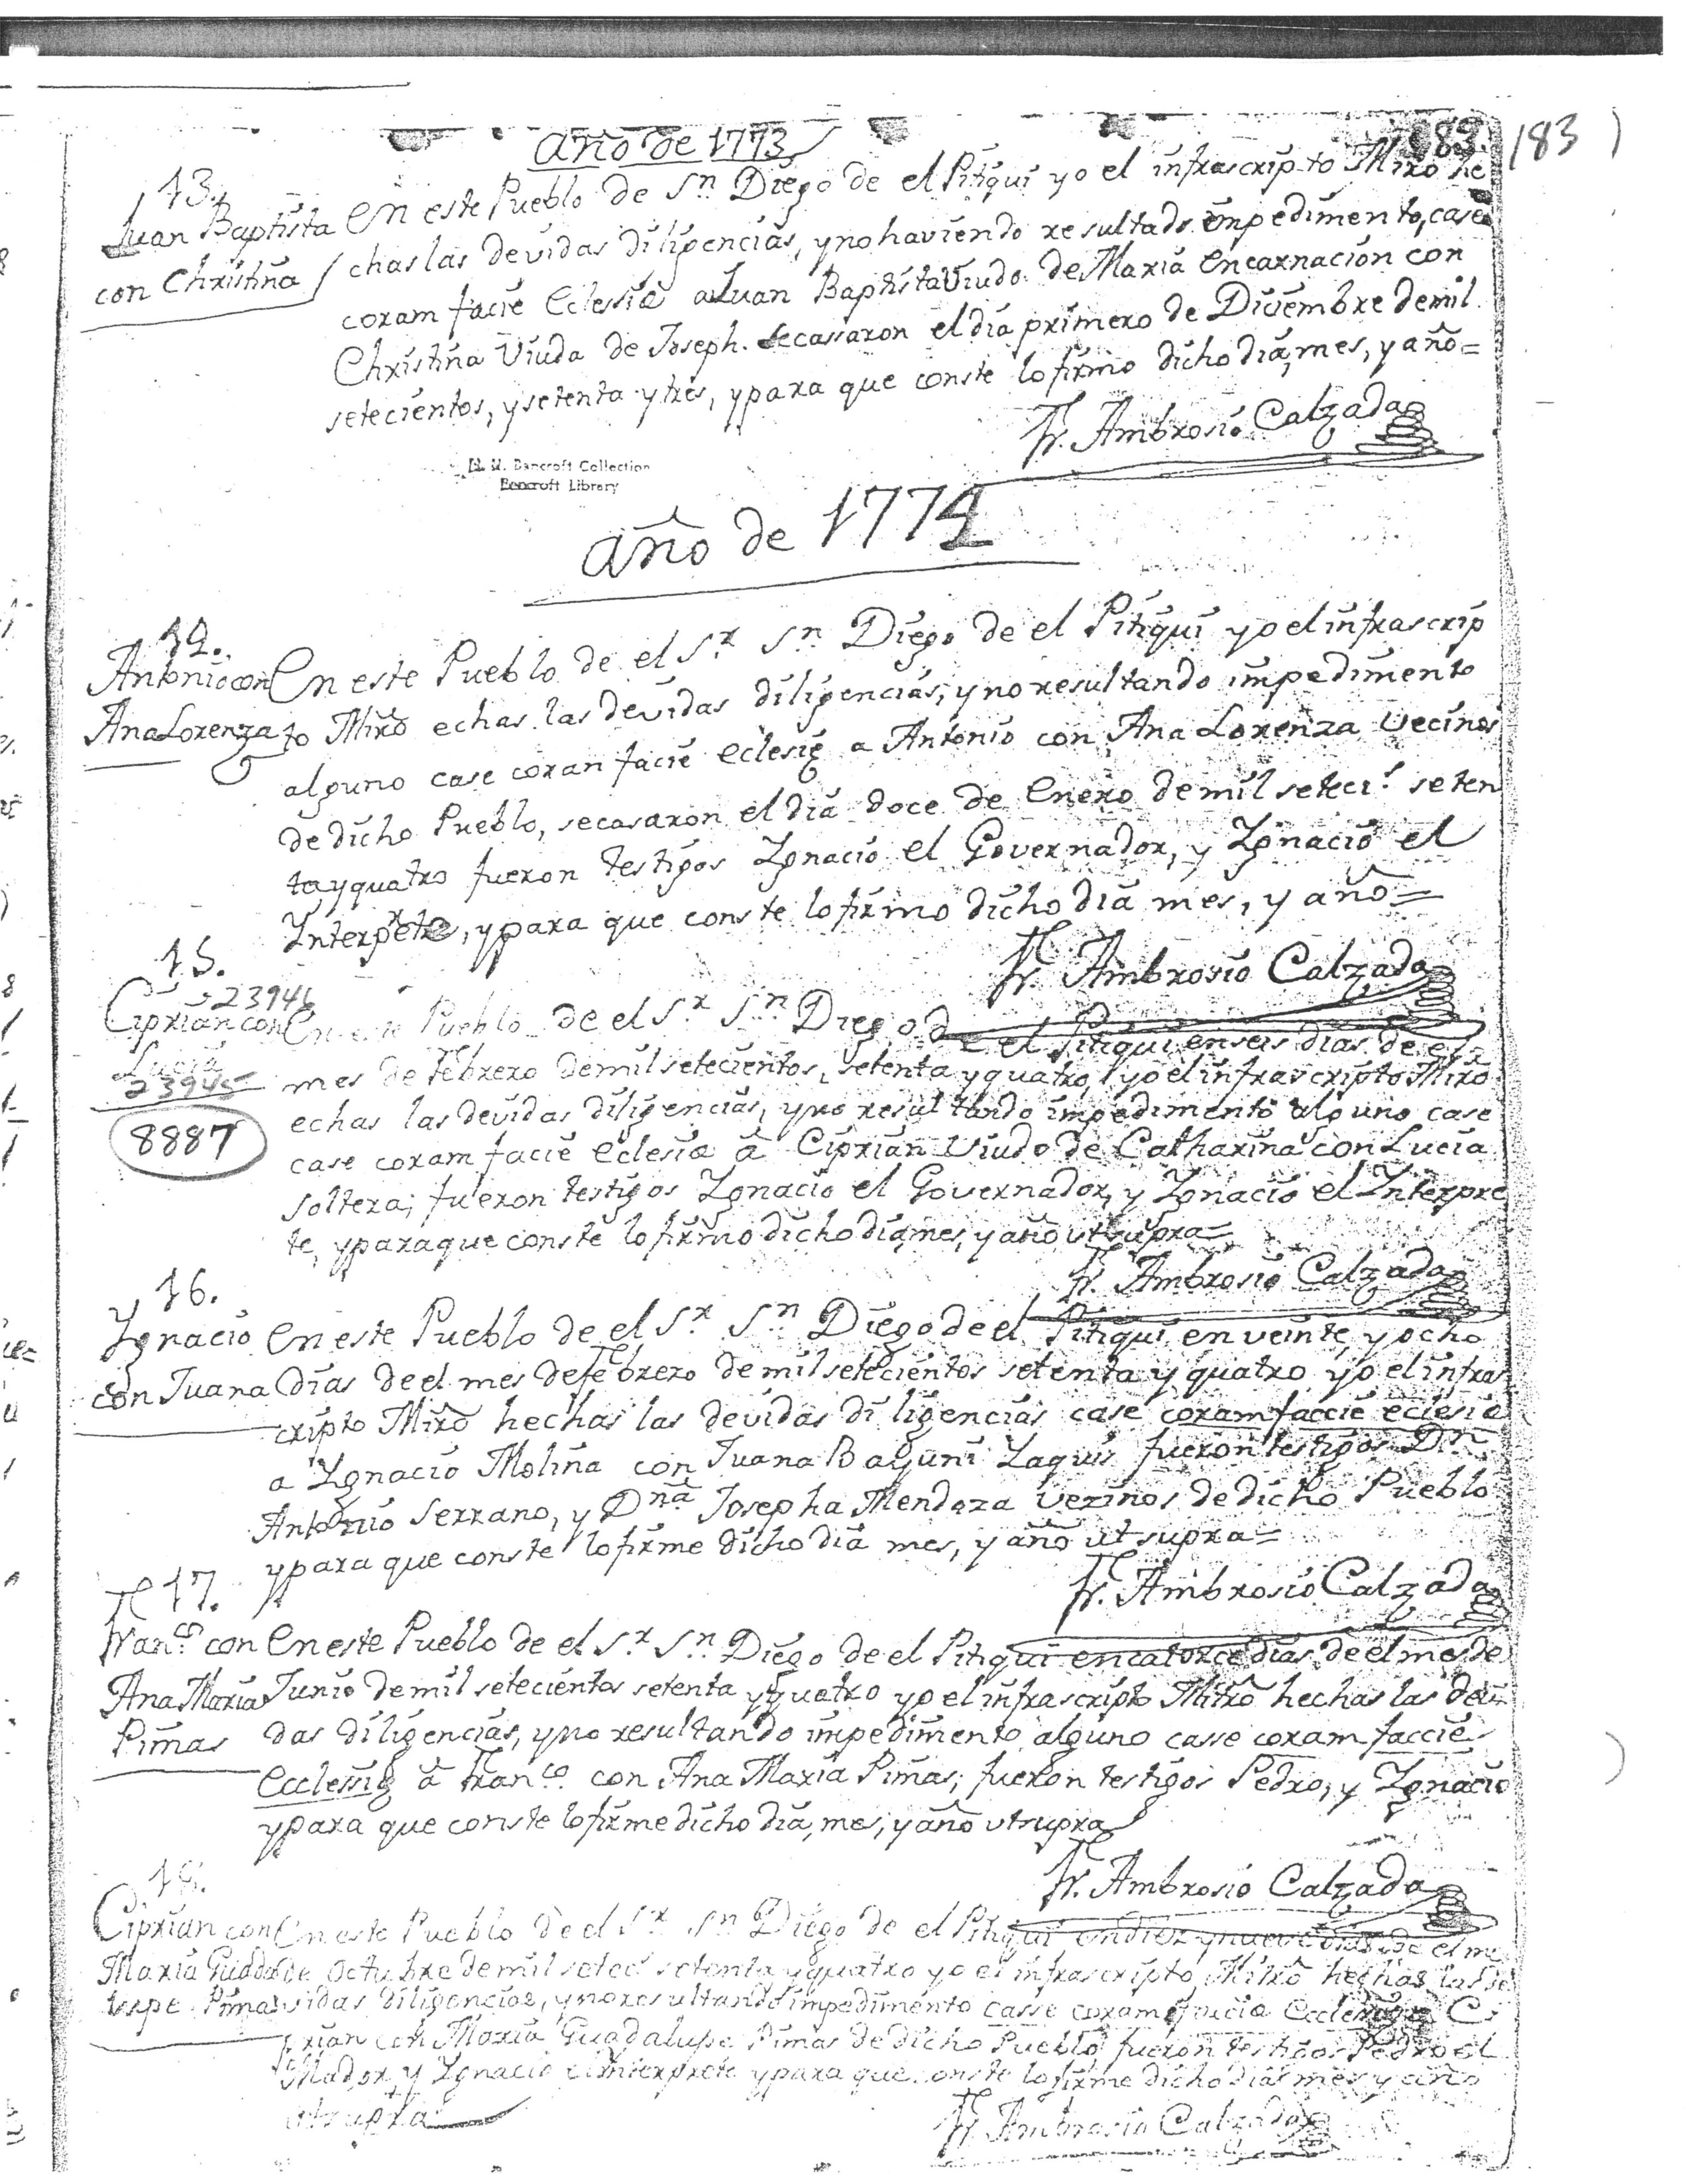 año de 1773
183
13.
Juan Baptista
con Christina
En este Pueblo de Sn. Diego de el Pitiqui yo el infrascripto Miño he
chas las devidas diligencias, y no haviendo resultado impedimento, case
coram facie Eclesia a Juan Baptista Viudo de Maria Encarnacion con
Christina Viuda de Joseph. se casaron el dia primero de Diciembre de mil
setecientos, y setenta y tres, y para que conste lo firmo dicho dia, mes, y año=
Fr. Ambrosio Calzada
H. H. Bancroft Collection
Bancroft Library
año de 1774
14.
Antonio con
Ana Lorenza
En este Pueblo de el Sr. Sn. Diego de el Pitiqui yo el infrascrip
to Miño echas las devidas diligencias, y no resultando impedimento
alguno case coran facie eclesie a Antonio con Ana Lorenza vecinos
de dicho Pueblo, se casaron el dia doce de Enero de mil seteci.s seten
ta y quatro fueron testigos Ygnacio el Governador, y Ygnacio el
Interprete, y para que conste lo firmo dicho dia mes, y año=
Fr. Ambrosio Calzada
15.
23946
Ciprian con
Lucia
23945
8887
En este Pueblo de el Sr. Sn. Diego de el Pitiqui en seis dias de el
mes de Febrero de mil setecientos, setenta y quatro, yo el infrascripto Miño
echas las devidas diligencias, y no resultando impedimento alguno case
case coram facie eclesia â Ciprian Viudo de Catharina con Lucia
soltera; fueron testigos Ygnacio el Governador, y Ygnacio el Interpre
te, y para que conste lo firmo dicho dia, mes, y año ut supra=
Fr. Ambrosio Calzada
16.
Ygnacio
con Juana
En este Pueblo de el Sr. Sn. Diego de el Pitiqui en veinte, y ocho
dias de el mes de Febrero de mil setecientos setenta y quatro yo el infras
cripto Miño hechas las devidas diligencias case coram faccie eclesia
a Ygnacio Molina con Juana Bayuni Yaquis fueron testigos Dn.
Antonio Serrano, y Dña Josepha Mendoza vezinos de dicho Pueblo
y para que conste lo firme dicho dia mes, y año ut supra=
Fr. Ambrosio Calzada
17.
Franco. con
Ana Maria
Pimas
En este Pueblo de el Sr. Sn. Diego de el Pitiqui en catorce dias de el mes de
Junio de mil setecientos setenta y quatro yo el infrascripto Mitrô hechas las devi
das diligencias, y no resultando impedimento alguno casse coram faccie
Ecclessie â Franco. con Ana Maria Pimas; fueron testigos Pedro, y Ygnacio
y para que conste lo firme dicho dia, mes, y año ut supra
Fr. Ambrosio Calzada
18.
Ciprian con
Maria Guada
lupe Pimas
En este Pueblo de el Sr. Sn. Diego de el Pitiqui en diez y nueve dias de el mes
de Octubre de mil setec.s setenta y quatro yo el infrascripto Mitrô hechas las de
vidas diligencias, y no resultando impedimento casse coram facie Ecclessie a Ci
prian con Maria Guadalupe Pimas de dicho Pueblo fueron testigos Pedro el
Mador, y Ygnacio el Interprete y para que conste lo firme dicho dia mes y año
ut supra
Fr. Ambrosio Calzada